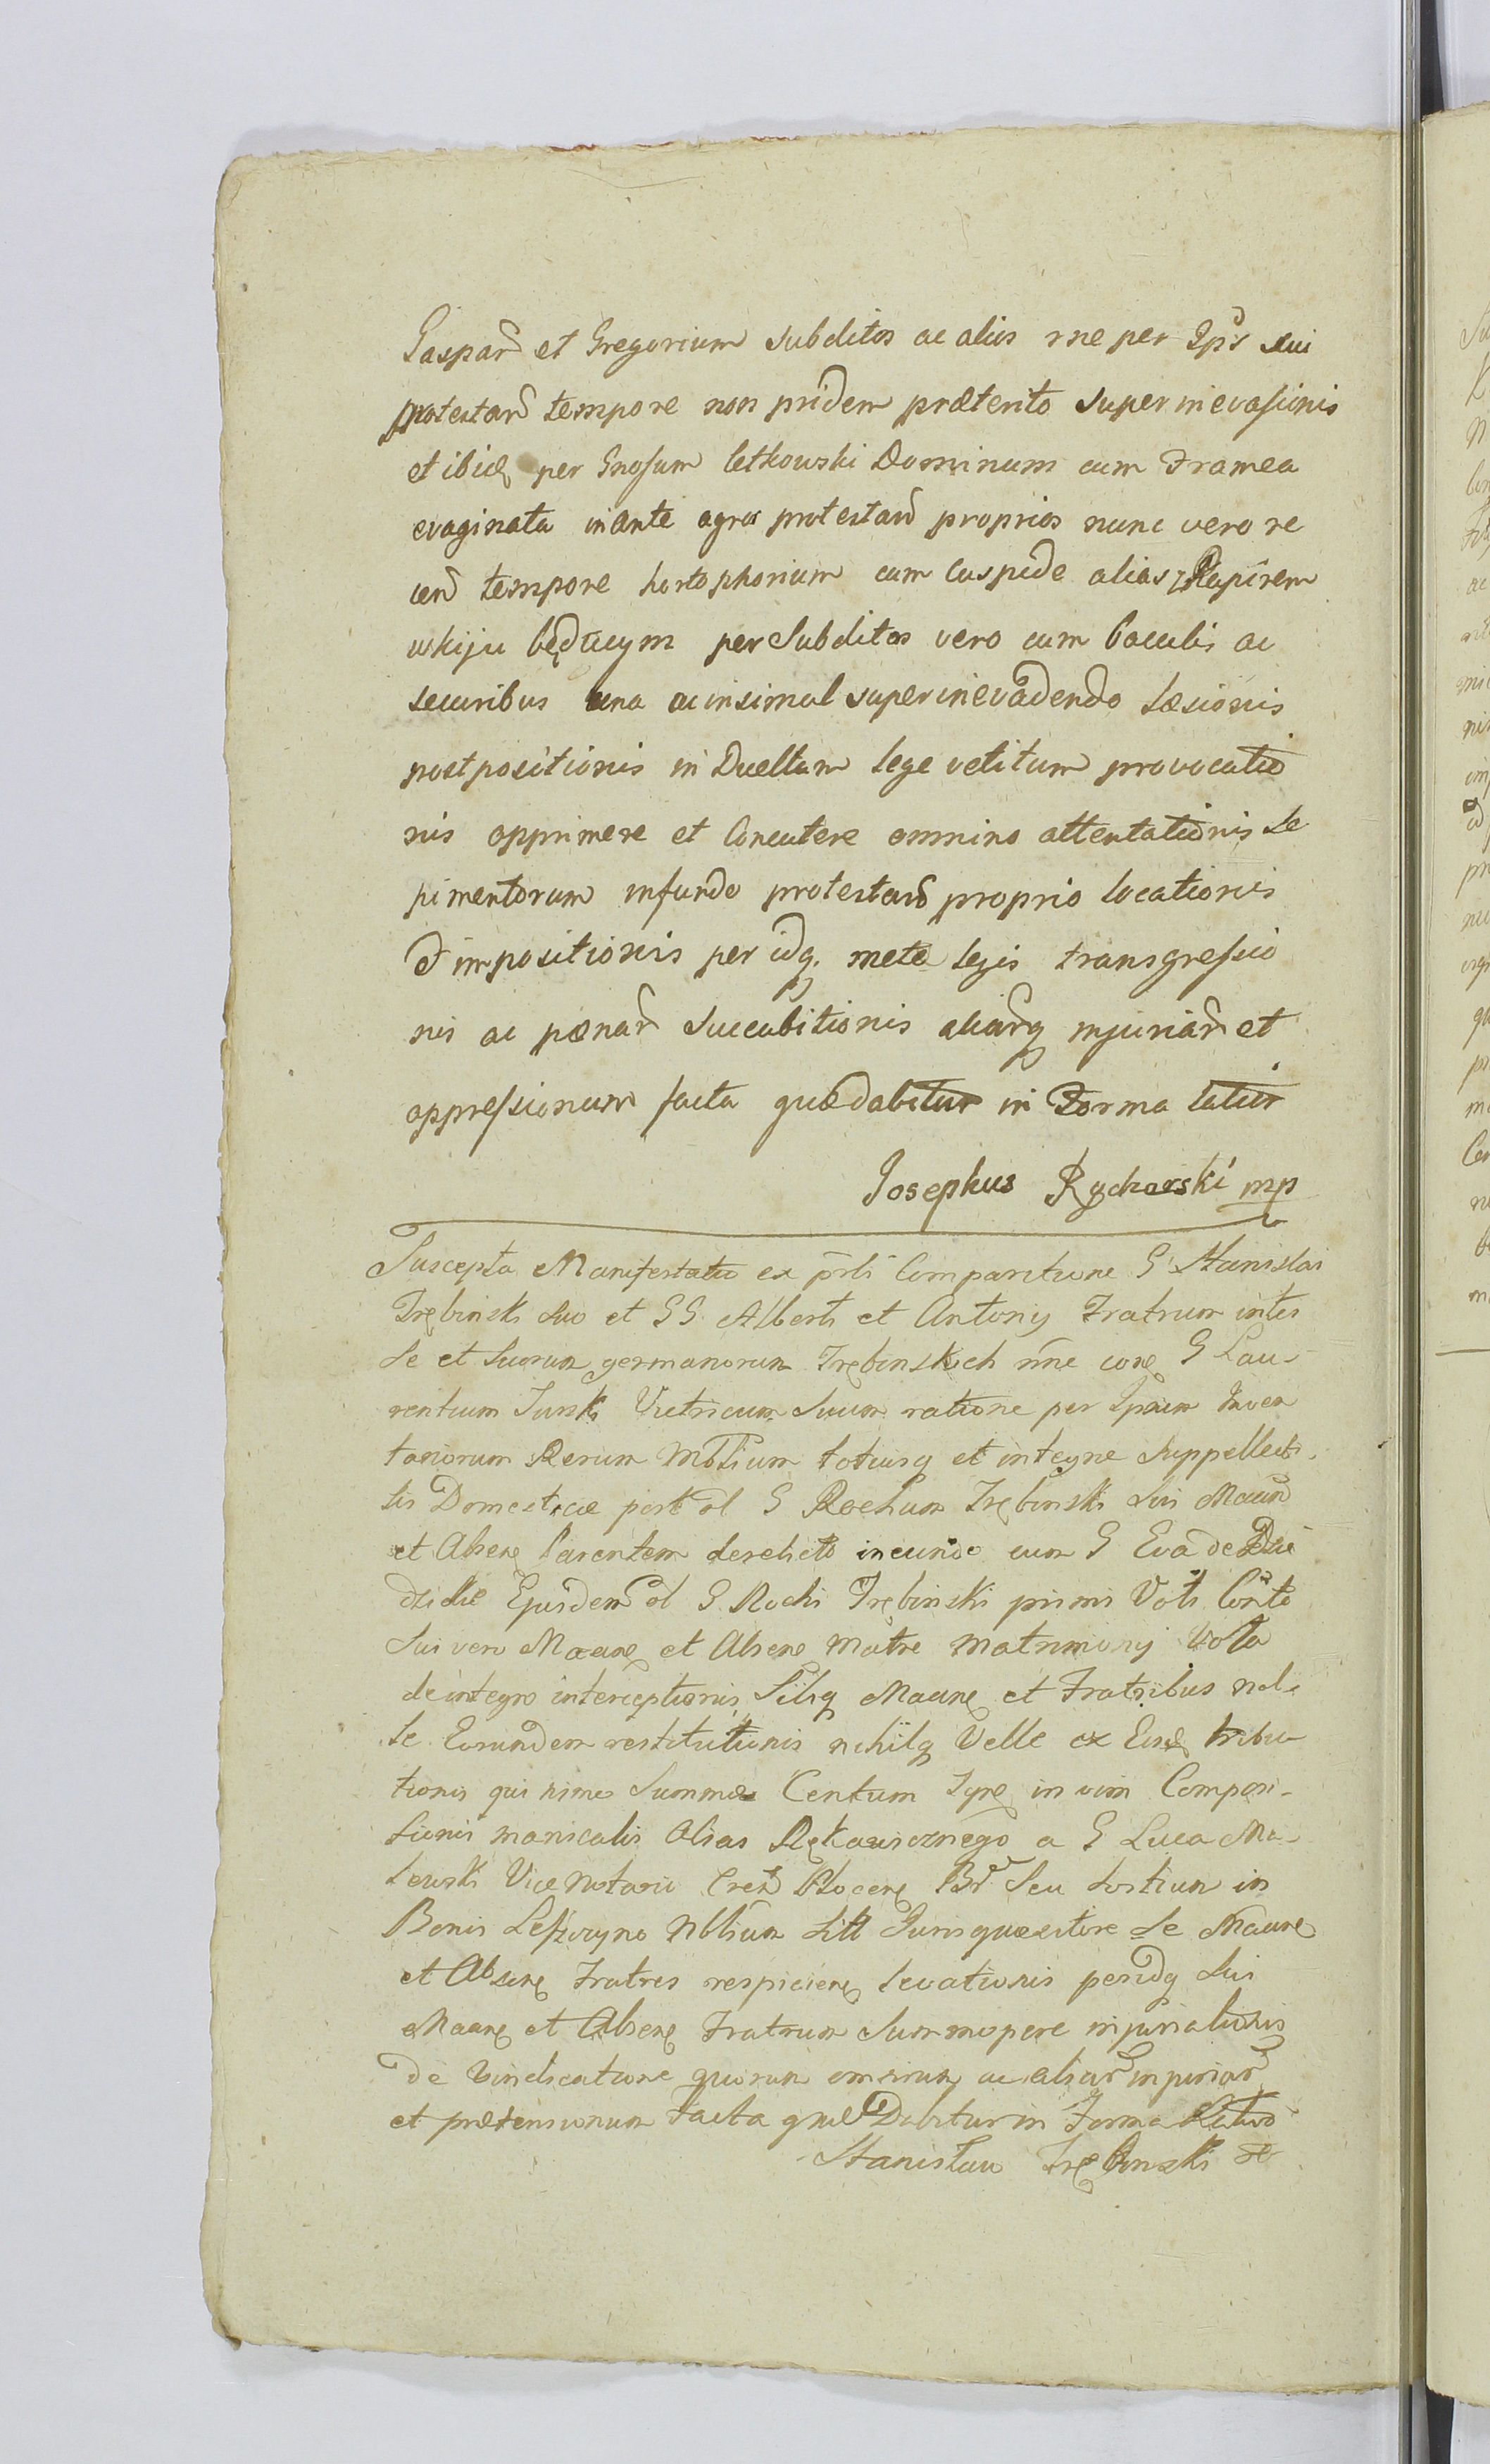 Gaspar et Gregorium Subditos ac alios rne per Ips sui
protestan tempore non pridem præterito super in evasionis
et ibidq per Gnosum Cetkowski Dominum cum Framea
evaginata in ante agros protestan proprios nunc vero re
cen tempore hortophorium cum Cuspide alias z Rapirem
wkiju będącym per Subditos vero cum baculis ac
securibus una ac insimul super in evadendo Læsionis
postpositionis in Duellum lege vetitum provocatio
nis opprimere et Concutere omnino attentationis Se
pimentorum in fundo protestan proprio locationis
& impositionis per idq. metæ legis transgressio
nis ac pænar Succubitionis aliarq injuriar et
oppressionum facta quæ dabitur in Forma latiur
Josephus Rycharski mp
Suscepta Manifestatio ex prli Comparitione G Stanislai
Trębinski Suo et GG Alberti et Antonij Fratrum inter
Se et Suorum germanorum Trębinskich nne cone G Lau-
rentium Turski Vitricum Suum ratione per Ipsum Inven
tariorum Rerum Mblium totiusq et integre Suppellecti-
lis Domesticæ post ol G Rochum Trębinski Sui Maan
et Absen Parentem derelicto ineundo cum G Eva de Dzie
dzickie Ejusdem ol G Rochi Trębinski primi Voti Conte
Sui vero Maane et Absene Matre Matrimonij Vota
de integro interceptionis Sibiq Maane et Fratribus nol-
le Eorundem restitutionis nihilq Velle ex Eisd tribu
tionis qui nimo Summæ Centum Tyne in vim Composi-
tionis manicalis alias Rękawicznego a G Luca Ma-
lewski Vice Notario Cren Plocene Br Seu Sortium in
Bonis Leszczyno Nbilium Litt Juris quæsitore Se Maane
et Absene Fratres respiciene levationis peridq Sui
Maane et Absene Fratrum Summopere injuriationis
de Vindicatione quorum omnium ac aliar injuriar
et prætensionum facta quæ Dabitur in Forma Latiori
Stanislaw Trębinski